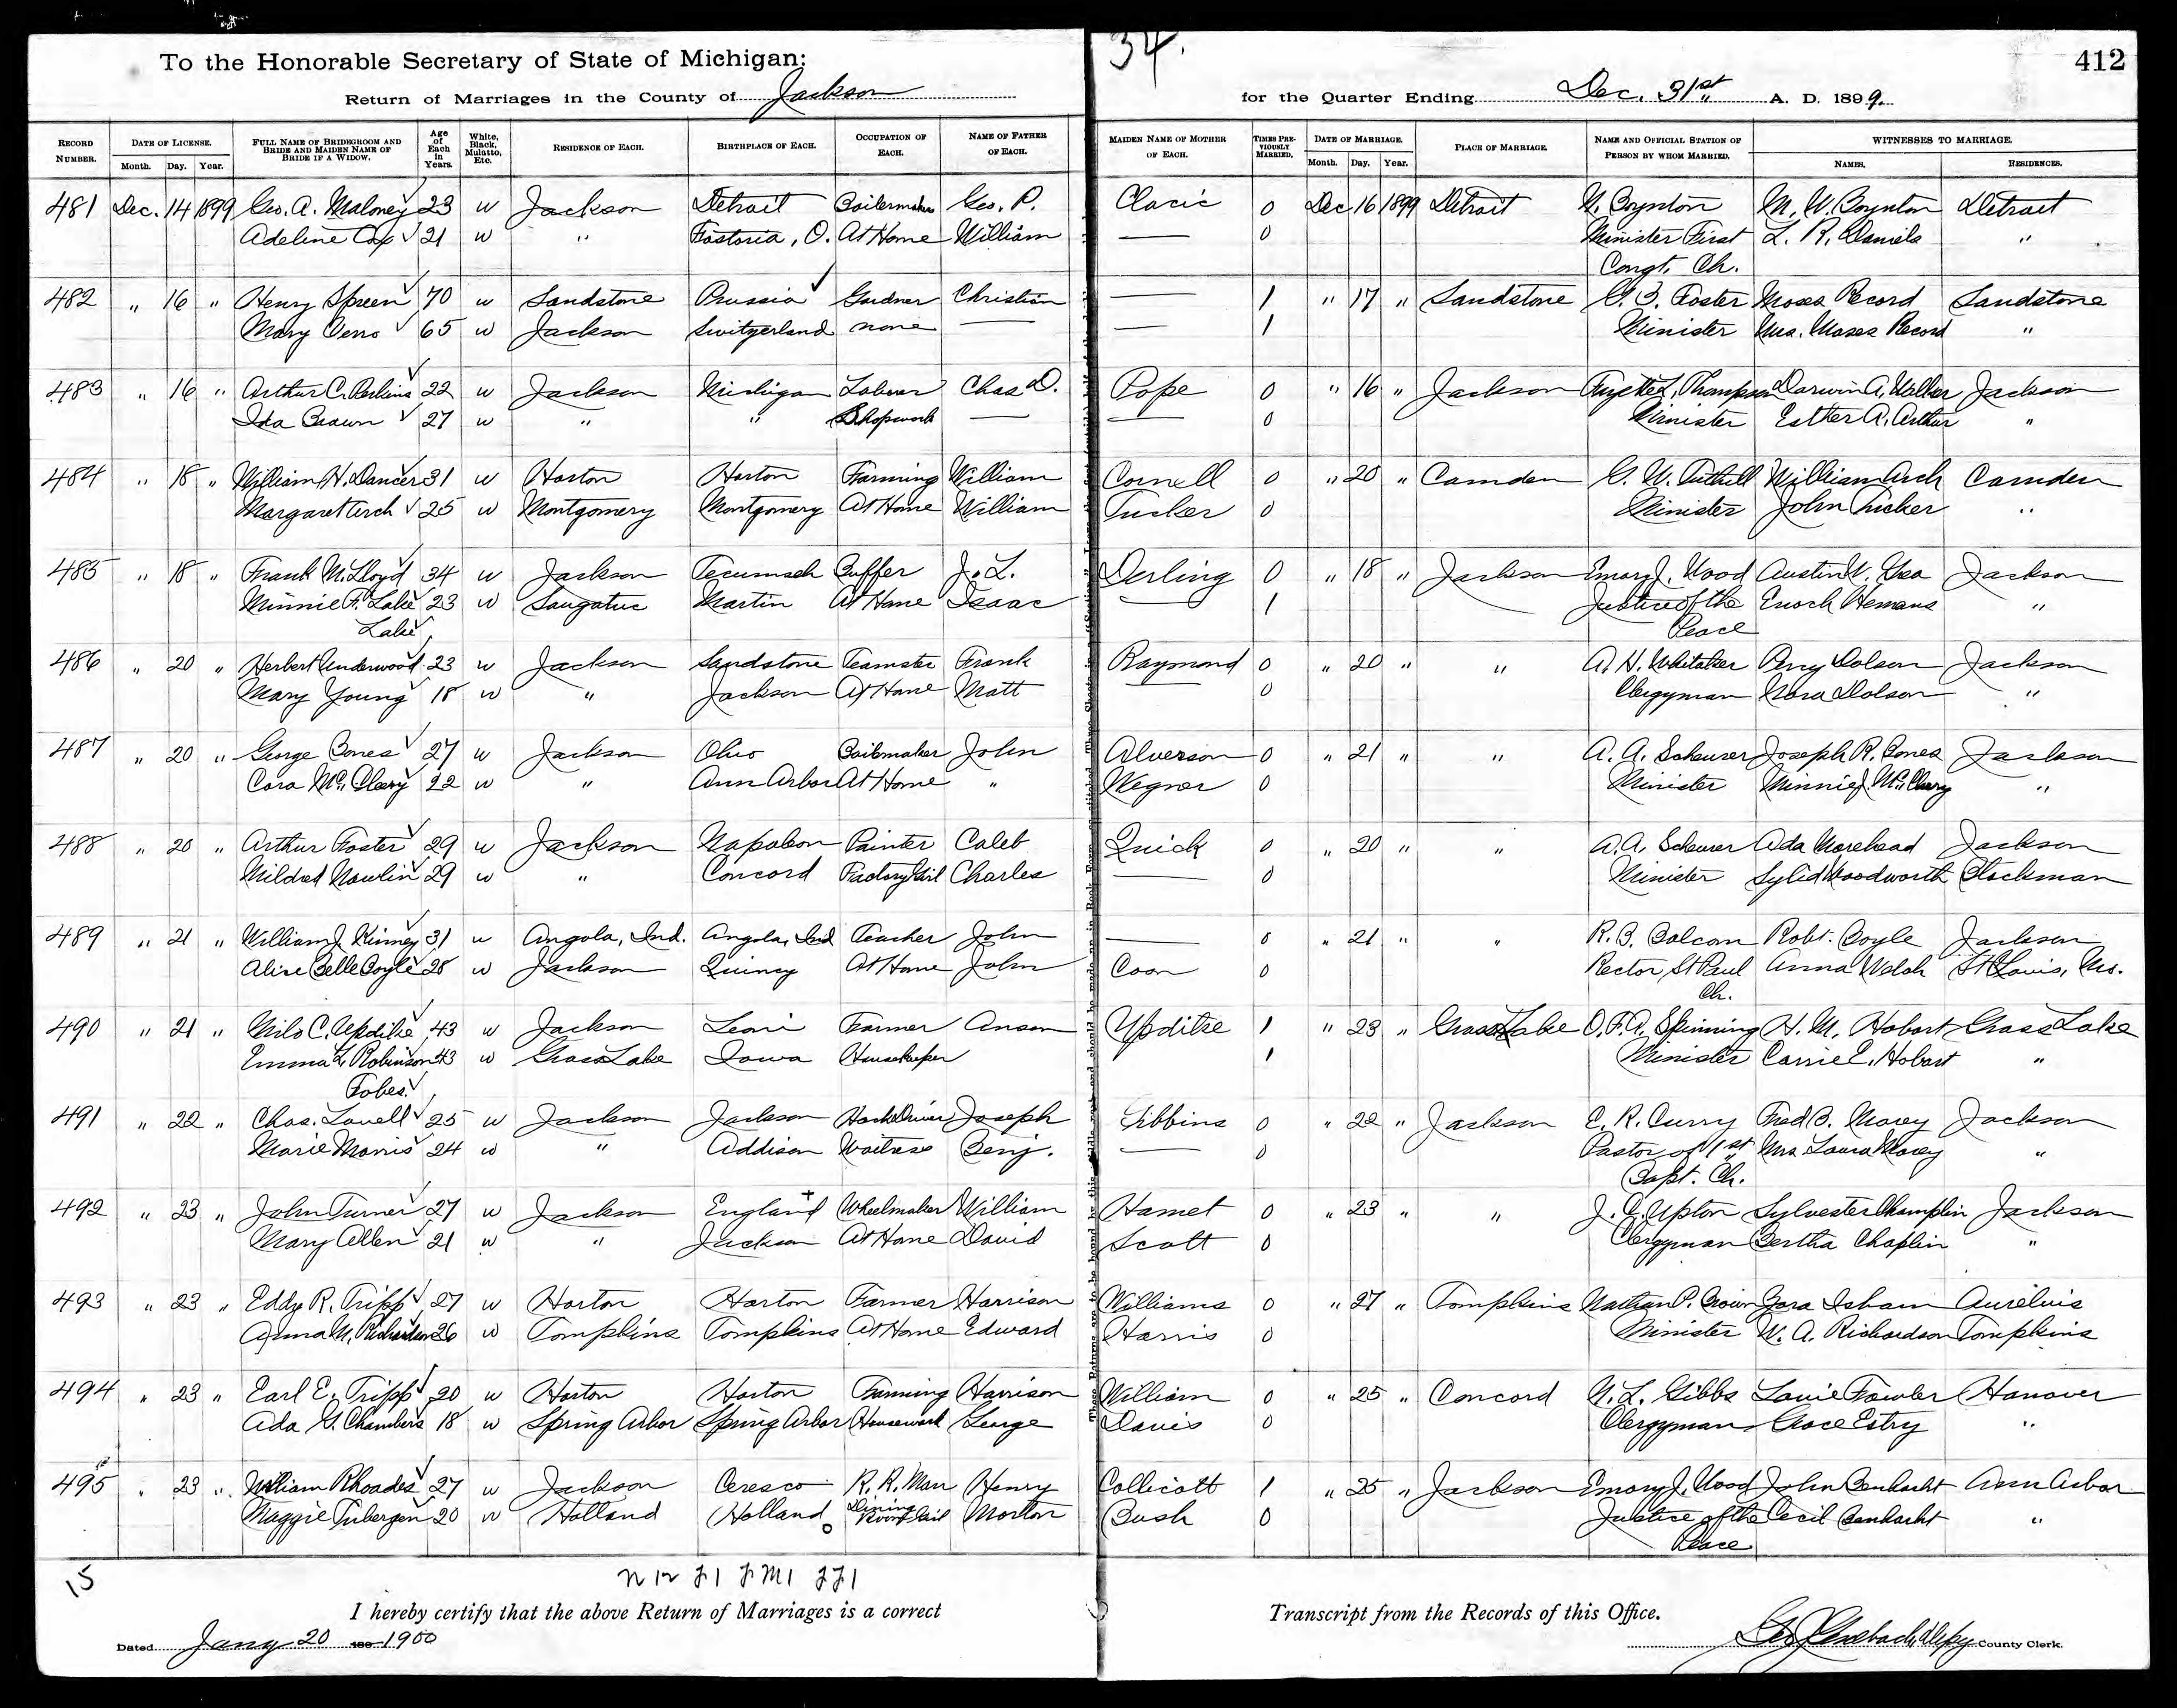 34.
412
To the Honorable Secretary of State of Michigan:
Return of Marriages in the County of Jackson for the Quarter Ending Dec. 31st A. D. 1899.
RECORD NUMBER. DATE OF LICENSE. Month. Day. Year. FULL NAME OF BRIDEGROOM AND BRIDE AND MAIDEN NAME OF BRIDE IF A WIDOW. Age of Each in Years. White, Black, Mulatto, Etc. RESIDENCE OF EACH. BIRTHPLACE OF EACH. OCCUPATION OF EACH. NAME OF FATHER OF EACH. MAIDEN NAME OF MOTHER OF EACH. TIMES PREVIOUSLY MARRIED. DATE OF MARRIAGE. Month. Day. Year. PLACE OF MARRIAGE. NAME AND OFFICIAL STATION OF PERSON BY WHOM MARRIED. WITNESSES TO MARRIAGE. NAMES. RESIDENCES.
481 Dec. 14 1899 Geo. A. Maloney 23 w Jackson Detroit Boilermaker Geo. P. Clacie 0 Dec 16 1899 Detroit N. Boynton M. W. Boynton Detroit
Adeline Cox 21 w " Fostoria, O. At Home William — 0 Minister First L. R. Daniels "
Congt. Ch.
482 " 16 " Henry Spreen 70 w Sandstone Prussia Gardner Christian — 1 " 17 " Sandstone G. B. Foster Moses Record Sandstone
Mary 65 w Jackson Switzerland none — — 1 Minister Mrs. Moses Record "
483 " 16 " Arthur C. Perkins 22 w Jackson Michigan Laborer Chas D. Pope 0 " 16 " Jackson Fayette L. Thompson Darwin A. Jackson
Ida Brown 27 w " " Shopwork — — 0 Minister Esther A. Arthur "
484 " 18 " William H. Dancer 31 w Horton Horton Farming William Cornell 0 " 20 " Camden G. W. Tuthill William Arch Camden
Margaret Arch 25 w Montgomery Montgomery At Home William Tucker 0 Minister John Tucker "
485 " 18 " Frank M. Lloyd 34 w Jackson Tecumseh Buffer J. L. Derling 0 " 18 " Jackson Emory J. Wood Austin Jackson
Minnie F. Lake 23 w Saugatuc Martin At Home Isaac — 1 Justice of the Enoch Hemans "
Lake Peace
486 " 20 " Herbert Underwood 23 w Jackson Sandstone Teamster Frank Raymond 0 " 20 " " A. H. Whitaker Perry Dolson Jackson
Mary Young 18 w " Jackson At Home Matt — 0 Clergyman Nora Dolson "
487 " 20 " George Bones 27 w Jackson Ohio Boilmaker John Alverson 0 " 21 " " A. A. Scheurer Joseph R. Bones Jackson
Cora McCleery 22 w " Ann Arbor At Home " Wegner 0 Minister Minnie J. McCleery "
488 " 20 " Arthur Foster 29 w Jackson Napoleon Painter Caleb Quick 0 " 20 " " A. A. Scheurer Ada Morehead Jackson
Mildred Nowlin 29 w " Concord Factory Girl Charles — 0 Minister Woodworth Blackman
489 " 21 " William J. Kinney 31 w Angola, Ind. Angola, Ind Teacher John — 0 " 21 " " R. B. Balcom Robt. Boyle Jackson
Alice Belle Boyle 28 w Jackson Quincy At Home John Coon 0 Rector St Paul Anna Welch St Louis, Mo.
Ch.
490 " 21 " Milo C. Updike 43 w Jackson Leoni Farmer Anson Updike 1 " 23 " Grass Lake O. F. A. Spinning H. M. Hobart Grass Lake
Emma L. Robinson 43 w Grass Lake Iowa Housekeeper 1 Minister Carrie E. Hobart "
Fobes
491 " 22 " Chas. Lovell 25 w Jackson Jackson Hack Driver Joseph Gibbins 0 " 22 " Jackson E. R. Curry Fred B. Morey Jackson
Marie Morris 24 w " Addison Waitress Benj. — 0 Pastor of 1st Mrs Laura Morey "
Bapt. Ch.
492 " 23 " John Turner 27 w Jackson England Wheelmaker William Hamet 0 " 23 " " J. C. Upton Sylvester Champlin Jackson
Mary Allen 21 w " Jackson At Home David Scott 0 Clergyman Bertha Chaplin "
493 " 23 " Eddy R. Tripp 27 w Horton Horton Farmer Harrison Williams 0 " 27 " Tompkins Nathan P. Brown Zora Isham Aurelius
Anna M. Richardson 26 w Tompkins Tompkins At Home Edward Harris 0 Minister W. A. Richardson Tompkins
494 " 23 " Earl E. Tripp 20 w Horton Horton Farming Harrison William 0 " 25 " Concord N. L. Gibbs Louie Fowler Hanover
Ada G. Chambers 18 w Spring Arbor Spring Arbor Housework George Davis 0 Clergyman Grace Estry "
495 " 23 " William Rhoades 27 w Jackson Ceresco R. R. Man Henry Collicott 1 " 25 " Jackson Emory J. Wood John Benhacht Ann Arbor
Maggie Tubergen 20 w Holland Holland Dining Room Girl Morton Bush 0 Justice of the Cecil Benhacht "
Peace
15
I hereby certify that the above Return of Marriages is a correct Transcript from the Records of this Office.
Dated Jany 20 189 1900 County Clerk.